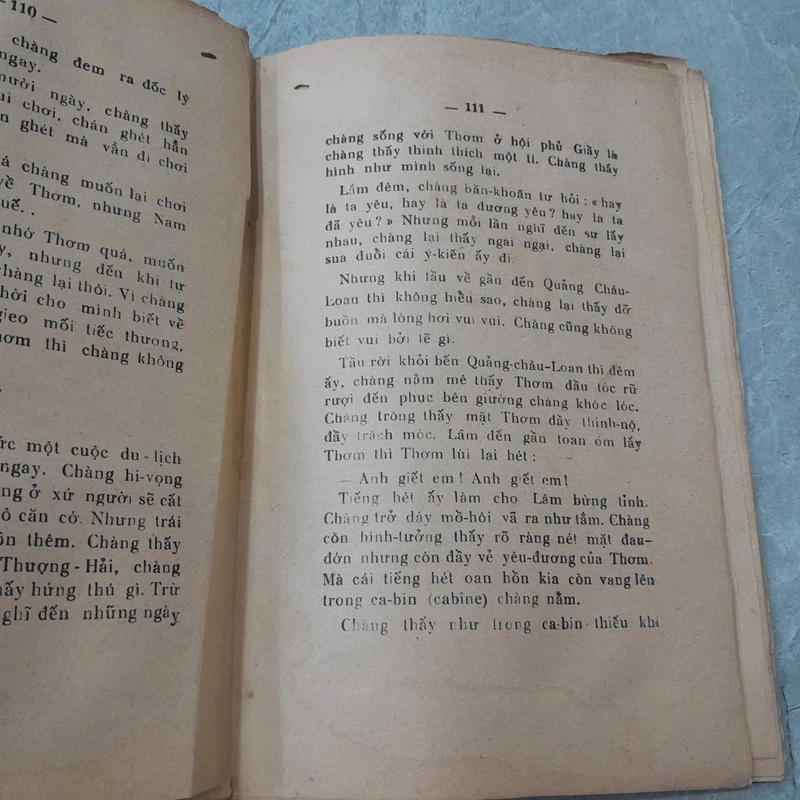 — 110 —
chàng đem ra đốc lý
ngay.
mười ngày, chàng thấy
ui chơi, chán ghét hẳn
n ghét mà vẫn đi chơi
á chàng muốn lại chơi
về Thơm, nhưng Nam
uế. .
nhớ Thơm quá, muốn
y, nhưng đến khi tự
chàng lại thôi. Vì chàng
hời cho mình biết về
gieo mối tiếc thương,
hơm thì chàng không
ức một cuộc du-lịch
ngay. Chàng hi-vọng
ng ở xứ người sẽ cất
ô căn cớ. Nhưng trái
ồn thêm. Chàng thấy
Thượng-Hải, chàng
hấy hứng thú gì. Trừ
nghĩ đến những ngày
— 111 —
chàng sống với Thơm ở hội phủ Giầy là
chàng thấy thinh thích một tí. Chàng thấy
hình như mình sống lại.
Lắm đêm, chàng băn-khoăn tư hỏi : « hay
là ta yêu, hay là ta đương yêu? hay là ta
đã yêu? » Nhưng mỗi lần nghĩ đến sự lấy
nhau, chàng lại thấy ngài ngại, chàng lại
sua đuổi cái ý-kiến ấy đi.
Nhưng khi tầu về gần đến Quảng Châu-
Loan thì không hiểu sao, chàng lại thấy đỡ
buồn mà lòng hơi vui vui. Chàng cũng không
biết vui bởi lẽ gì.
Tầu rời khỏi bến Quảng-châu-Loan thì đêm
ấy, chàng nằm mê thấy Thơm đầu tóc rũ
rượi đến phục bên giường chàng khóc lóc.
Chàng trông thấy mặt Thơm đầy thịnh-nộ,
đầy trách móc. Lâm đến gần toan ôm lấy
Thơm thì Thơm lùi lại hét :
— Anh giết em ! Anh giết em!
Tiếng hét ấy làm cho Lâm bừng tỉnh.
Chàng trở dậy mồ-hôi vã ra như tắm. Chàng
còn hình-tưởng thấy rõ ràng nét mặt đau-
đớn nhưng còn đầy vẻ yêu-đương của Thơm.
Mà cái tiếng hét oan hồn kia còn vang lên
trong ca-bin (cabine) chàng nằm.
Chàng thấy như trong ca-bin thiếu khí